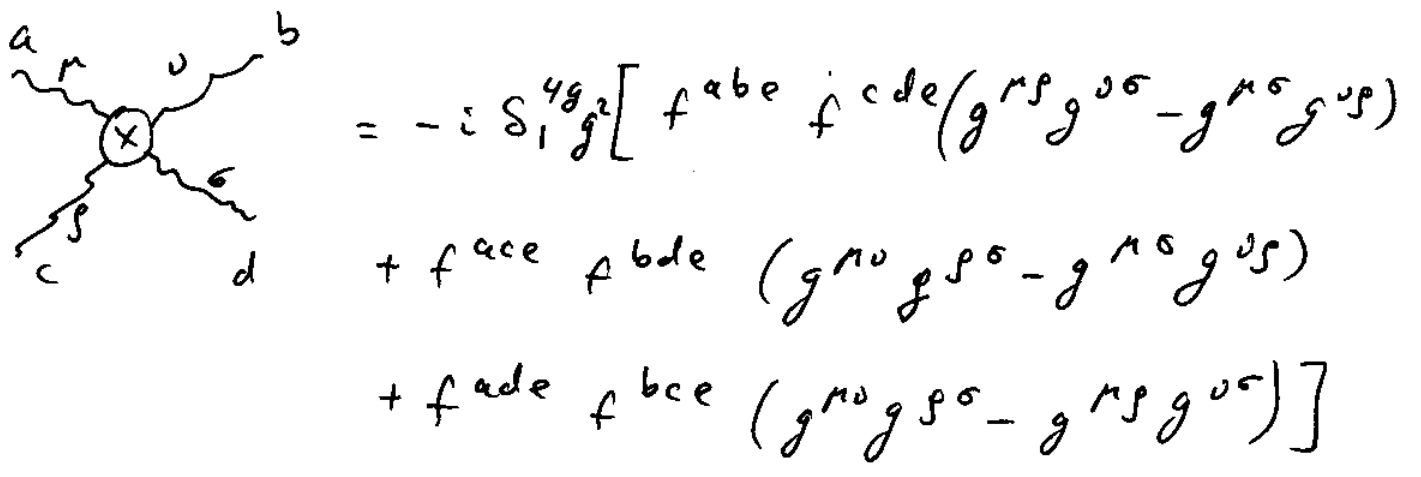 a μ ν b
= - i δ₁^{4g} g² [ f^{abe} f^{cde} (g^{μρ} g^{νσ} - g^{μσ} g^{νρ})
ρ σ
c d
+ f^{ace} f^{bde} (g^{μν} g^{ρσ} - g^{μσ} g^{νρ})
+ f^{ade} f^{bce} (g^{μν} g^{ρσ} - g^{μρ} g^{νσ}) ]